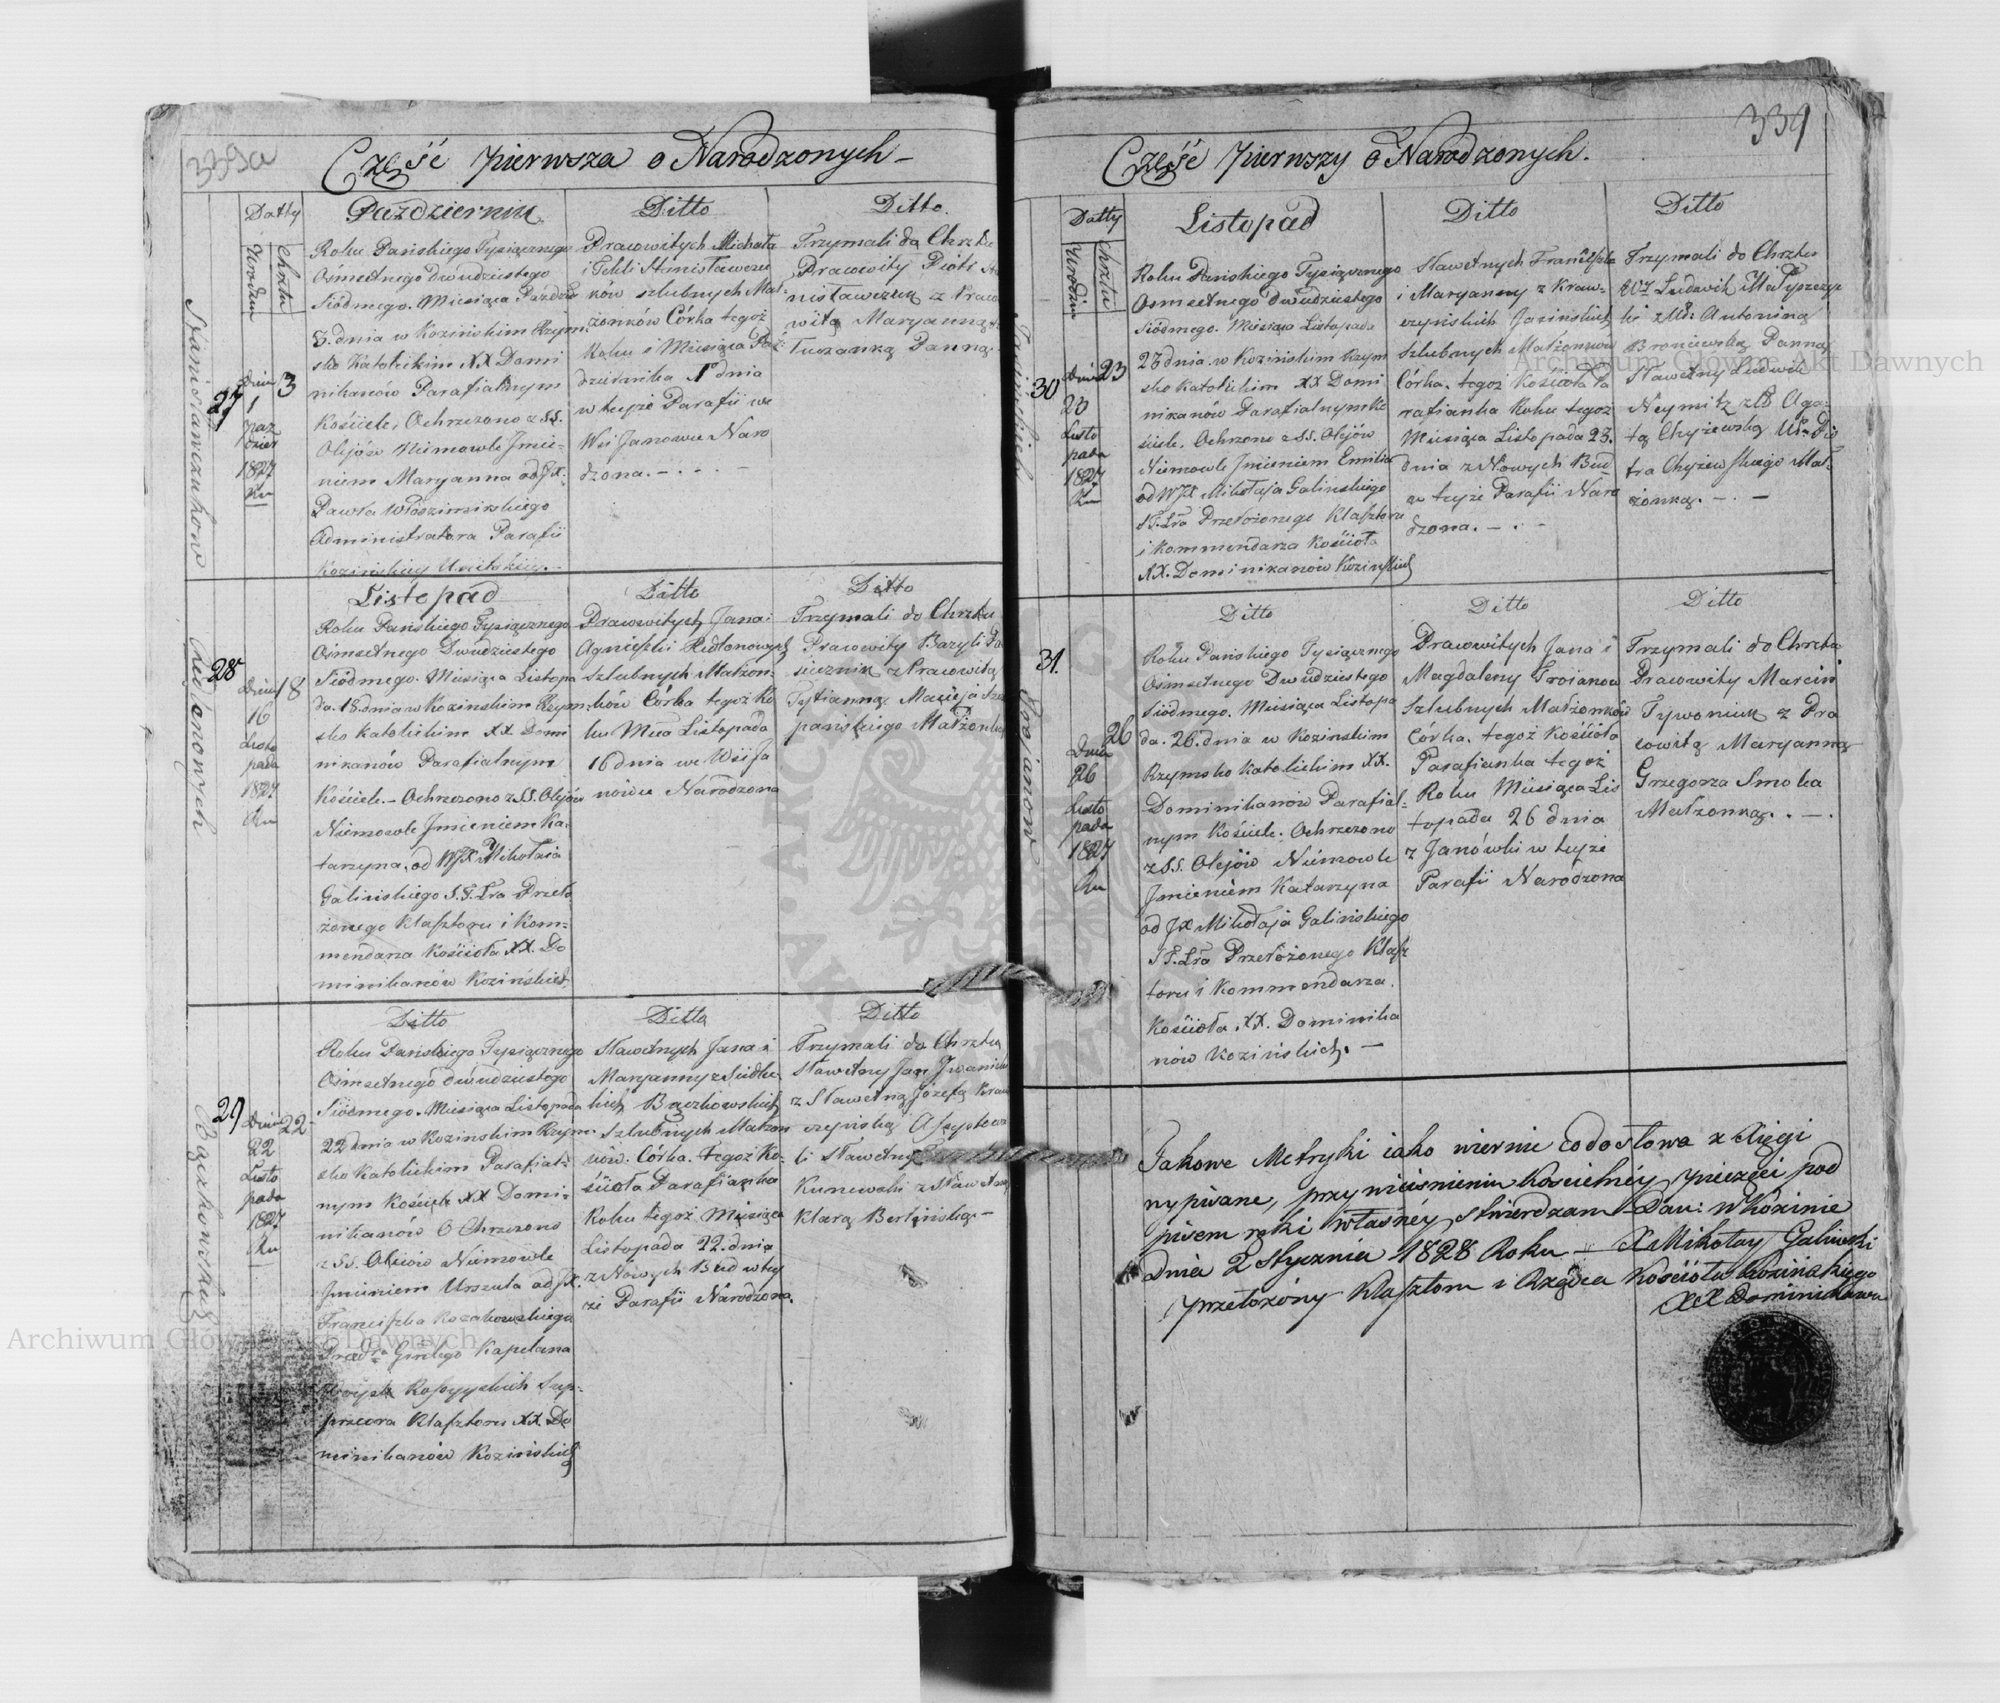 339a
Część pierwsza o Narodzonych
Datty
Urodzin
Chrztu
Październik
Ditto
Ditto
Stanisławczukow
27
Dnia
1
paz
dzier
1827
Ru
3
Roku Pańskiego Tysiącznego
Ośmsetnego Dwudziestego
Siódmego. Miesiąca Paździer
3. dnia w Kozińskim Rzym
sko Katolickim XX Domi
nikanów Parafialnym
Kościele, Ochrzczono z SS.
Olejów Niemowle Jmie-
niem Maryanna od JX.
Pawła Włodzimirskiego
Administratora Parafii
Kozińskiey Unitskiey.
Pracowitych Michała
i Tekli Stanisławczu
ków szlubnych Mał-
żonków Córka tegoż
Roku i Miesiąca Paź
dziernika 1 dnia
w teyże Parafii we
Wsi Janowce Naro
dzona.
Trzymali do Chrztu
Pracowity Piotr
nisławczuk z Praco
witą Maryanną
Panną.
Listopad
Ditto
Ditto
Redlonowych
28
Dnia
16
Listo
pada
1827
Ru
18
Roku Pańskiego Tysiącznego
Ośmsetnego Dwudziestego
Siódmego. Miesiąca Listopa
da. 18. dnia w Kozinskim Rzym
sko Katolickim XX Domi
nikanów Parafialnym
Kościele. Ochrzczono z SS. Olejów
Niemowle Jmieniem Ka-
tarzyna, od WJX Mikołaia
Galińskiego S.T.Lra Przeło
żonego Klasztoru i Kom-
mendarza Kościoła XX. Do
minikanów Kozińskich
Pracowitych Jana i
Agnieszki Redlonowych
Szlubnych Małżon-
ków Córka tegoż Ro
ku Mca Listopada
16 dnia we Wsi Ja
nówce Narodzona
Trzymali do Chrztu
Pracowity Bazyli Pa
siecznik z Pracowitą
Tytianną Macieja
pańskiego Małżonką
Ditto
Ditto
Ditto
Bączkowskich
29
Dnia
22
Listo
pada
1827
Ru
22
Roku Pańskiego Tysiącznego
Ośmsetnego dwudziestego
Siódmego. Miesiąca Listopada
22 dnia w Kozinskim Rzym
sko Katolickim Parafial-
nym Kościele XX Domi-
nikanów Ochrzczono
z SS. Oleiów Niemowle
Jmieniem Urszula od JX.
Franciszka Kozakowskiego
Kapelana
Woysk Rossyyskich Sup-
przeora Klasztoru XX. Do
minikanów Kozińskich
Sławetnych Jana i
Maryanny z Siedlec
kich Bączkowskich
Szlubnych Małżon
ków. Córka. tegoż Ko-
ścioła Parafianka
Roku tegoż Miesiąca
Listopada 22. dnia
z Nowych Bud w tey
że Parafii Narodzona.
Trzymali do Chrztu
Sławetny Jan Jwanicki
z Sławetną Józefą Kraw
czyńską Assystowa
li Sławetny
Kunewski z Sławetną
Klarą Berlińską
339
Część pierwszy o Narodzonych.
Datty
Urodzin
Chrztu
Listopad
Ditto
Ditto
Jasińskich
30
Dnia
23
Listo
pada
1827
Ru
23
Roku Pańskiego Tysiącznego
Osmsetnego dwudziestego
Siódmego. Miesiąca Listopada
23 dnia w Kozinskim Rzym
sko Katolickim XX Domi
nikanów Parafialnym Ko
ściele. Ochrzczono z SS. Olejów
Niemowle Jmieniem Emilia
od WJX Mikołaja Galinskiego
S.T.Lra Przełożonego Klasztoru
i Kommendarza Kościoła
XX. Dominikanów Kozinskich
Sławetnych Franciszka
i Maryanny z Kraw-
czyńskich Jasińskich
Szlubnych Małżonków
Córka. tegoż Kościoła Pa
rafianka Roku tegoż
Miesiąca Listopada 23.
dnia z Nowych Bud
w teyże Parafii Naro
dzona.
Trzymali do Chrztu
Ludwik
Antoniną
Broniewską Panną
Sławetny Ludwik
Neymitz z Aga-
tą Chyżewską
tra Chyżewskiego Mał-
żonką.
Ditto
Ditto
Ditto
Trojanow
31.
Dnia
26
Listo
pada
1827
Ru
26
Roku Pańskiego Tysiącznego
Ośmsetnego Dwudziestego
Siódmego. Miesiąca Listopa
da. 26. dnia w Kozinskim
Rzymsko Katolickim XX.
Dominikanów Parafial-
nym Kościele. Ochrzczono
z SS. Olejów Niemowle
Jmieniem Katarzyna
od JX Mikołaja Galińskiego
S.T.Lra Przełożonego Klasz
toru i Kommendarza
Kościoła XX. Dominika
nów Kozińskich.
Pracowitych Jana i
Magdaleny Troianow
Szlubnych Małżonków
Córka. tegoż Kościoła
Parafianka tegoż
Roku Miesiąca Lis
topada 26 dnia
z Janówki w teyże
Parafii Narodzona
Trzymali do Chrztu
Pracowity Marcin
Tywoniuk z Pra
cowitą Maryanną
Grzegorza Smoka
Małżonką.
Takowe Metryki iako wiernie co do słowa z Xięgi
wypisane, przy wiciśnieniu Kościelnéy pieczęci pod
pisem ręki własnéy stwierdzam Dan: w Kozinie
dnia 2 Stycznia 1828 Roku – X Mikołay Galinski
przełożony Klasztoru i Rządca Kościoła Kozinskiego
XX Dominikanow
Archiwum Główne Akt Dawnych
Archiwum Główne Akt Dawnych